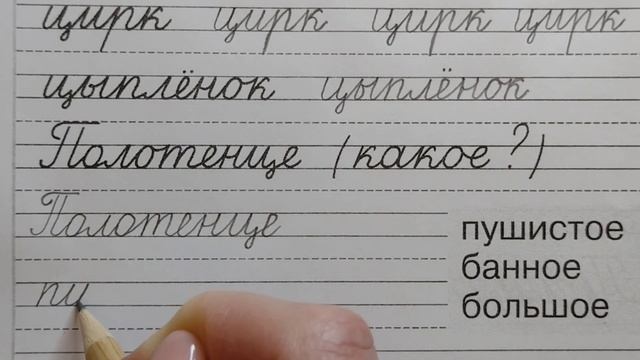 цирк цирк цирк цирк
цыплёнок цыплёнок
Полотенце (какое?)
Полотенце
пушистое
банное
пи
большое